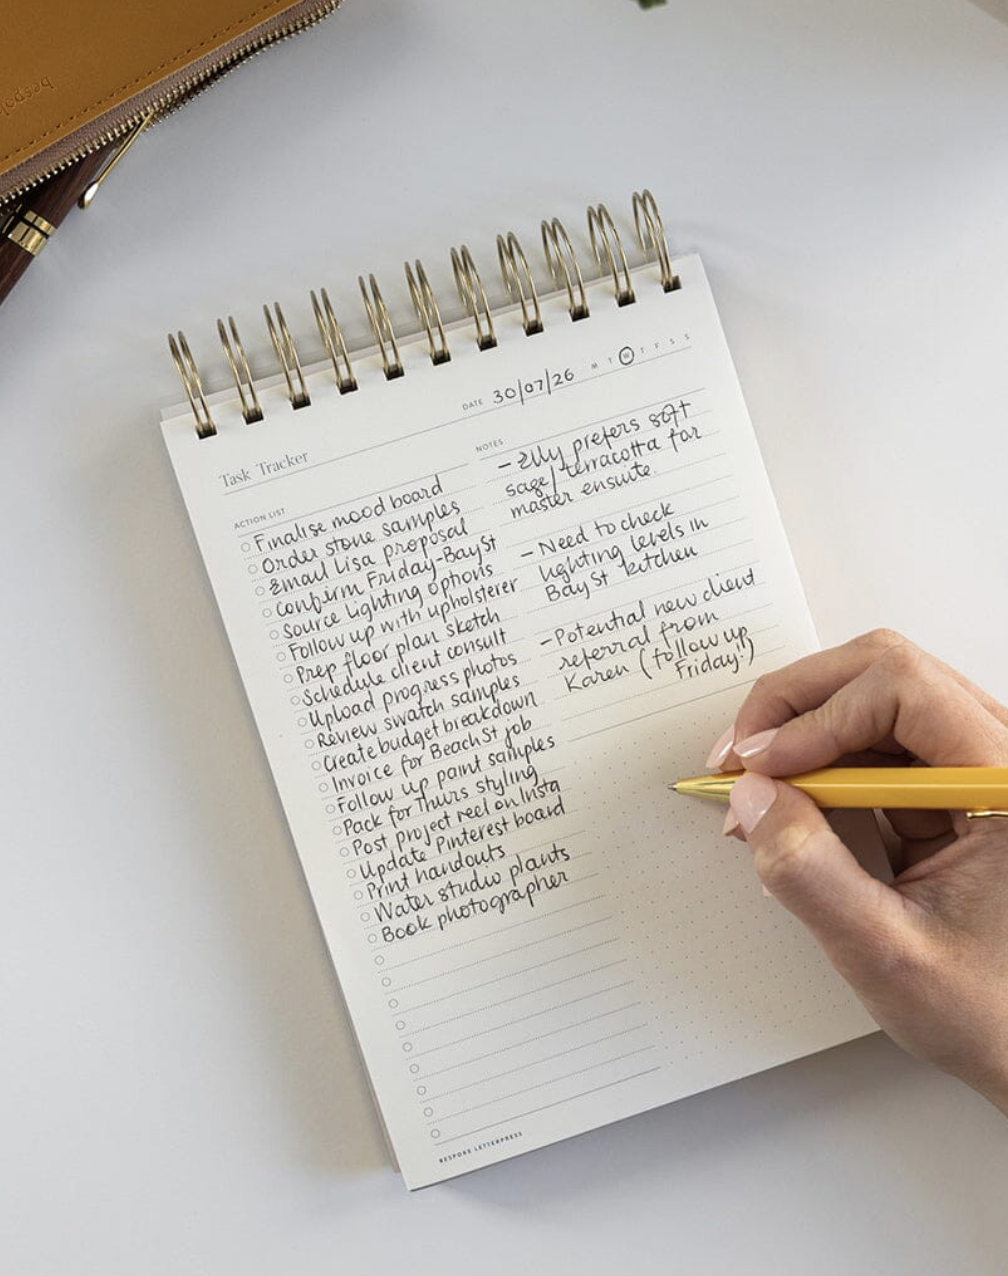 bespok
DATE 30/07/26 M T W T F S S
Task Tracker
ACTION LIST
Finalise mood board
Order stone samples
Email Lisa proposal
Confirm Friday-Bay St
Source Lighting options
Follow up with upholsterer
Prep floor plan sketch
Schedule client consult
Upload progress photos
Review swatch samples
Create budget breakdown
Invoice for Beach St job
Follow up paint samples
Pack for Thurs styling
Post project reel on Insta
Update Pinterest board
Print handouts
Water studio plants
Book photographer
NOTES
- Elly prefers soft
sage/terracotta for
master ensuite.
- Need to check
lighting levels in
Bay St kitchen
- Potential new client
referral from
Karen (follow up
Friday!!)
BESPOKE LETTERPRESS